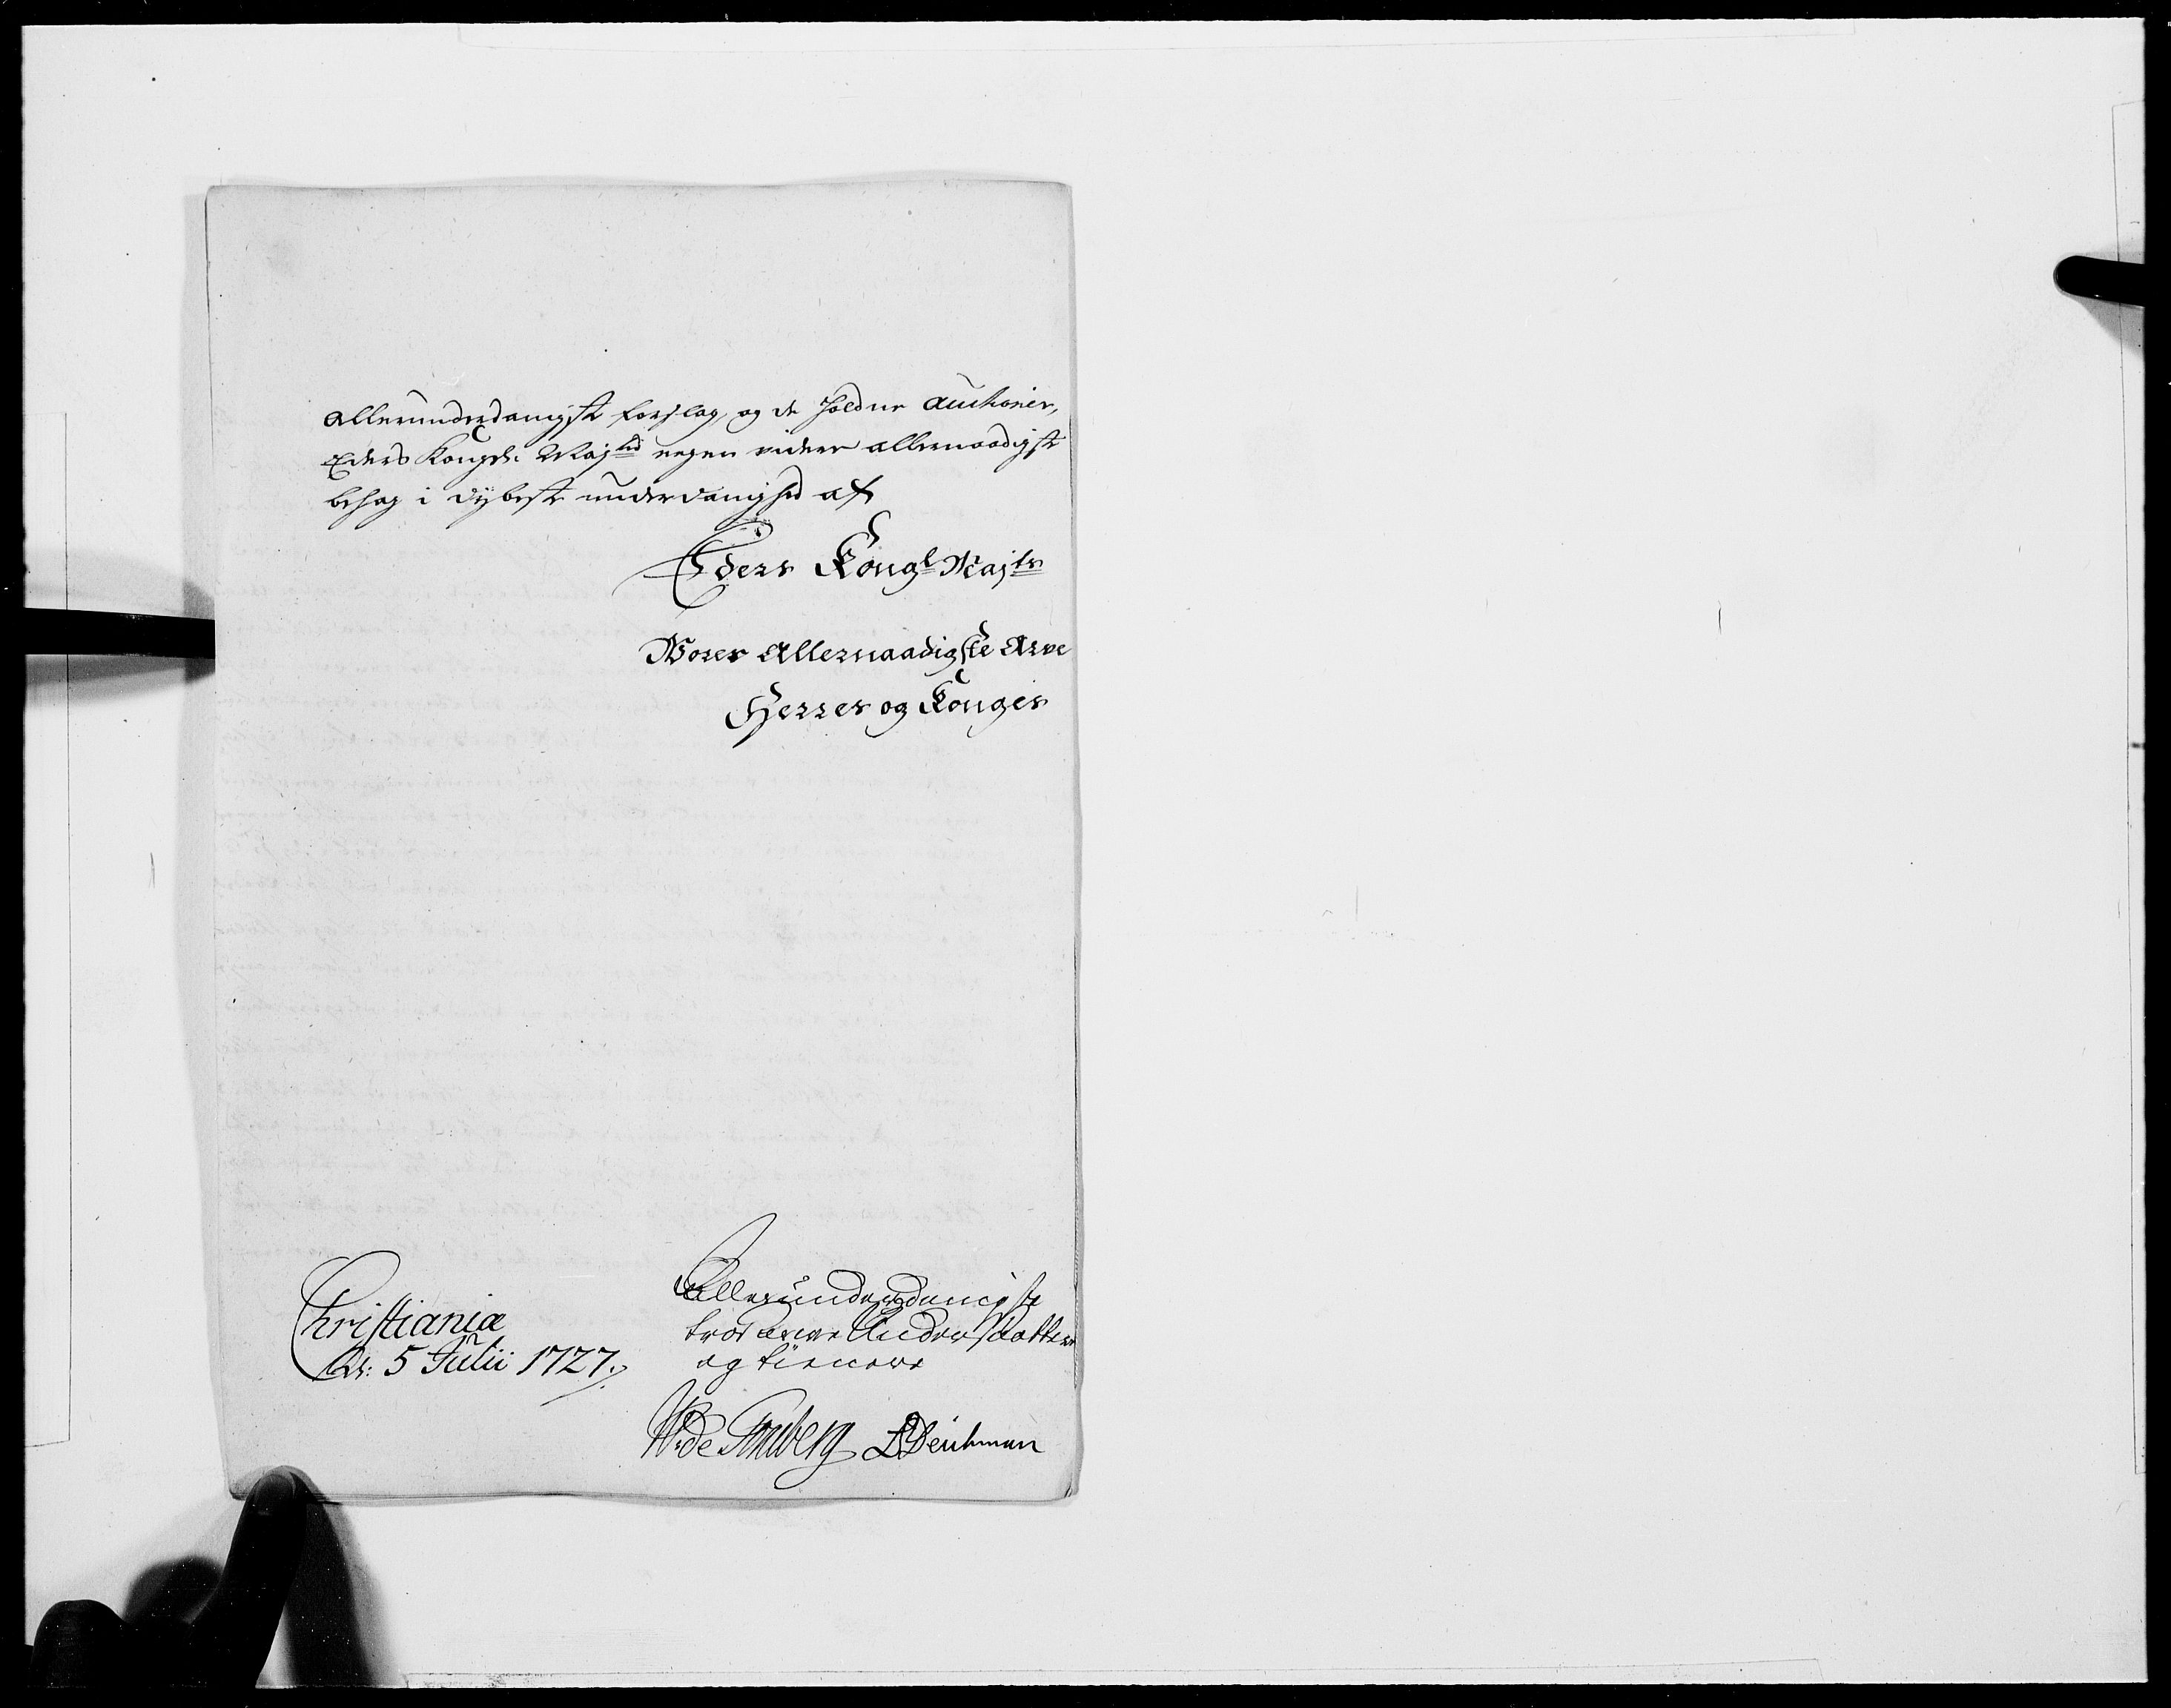 allerunderdanigste forslag og de holdne auctioner,
Eders Kongel: Majts egen videre allernaadigste
behag i dybeste underdanighed af
Eders Kongl Majts
Wores Allernaadigste Arve
Herres og Konges
Christiania
d: 5 Julii 1727.
Allerunderdanigste
troe Arve Undersaattere
og tienere
W: de Tonsberg BDeichman